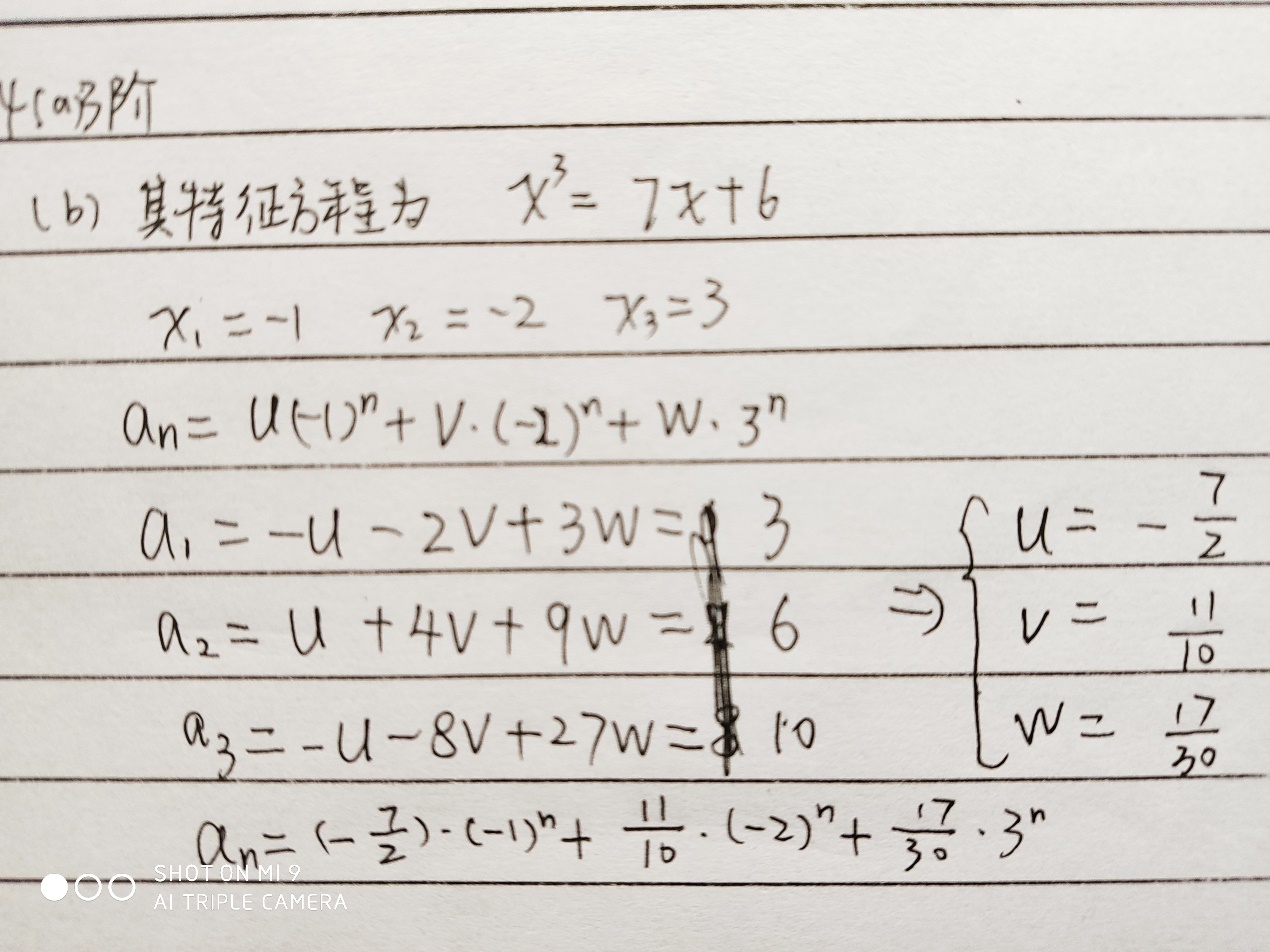 4(a)3阶
(b) 其特征方程为 x³ = 7x+6
x₁ = -1 x₂ = -2 x₃ = 3
aₙ = u(-1)ⁿ + v·(-2)ⁿ + w·3ⁿ
a₁ = -u - 2v + 3w = 3 u = - 7/2
a₂ = u + 4v + 9w = 6 ⇒ { v = 11/10
a₃ = -u - 8v + 27w = 10 w = 17/30
aₙ = (- 7/2)·(-1)ⁿ + 11/10 · (-2)ⁿ + 17/30 · 3ⁿ
SHOT ON MI 9
AI TRIPLE CAMERA